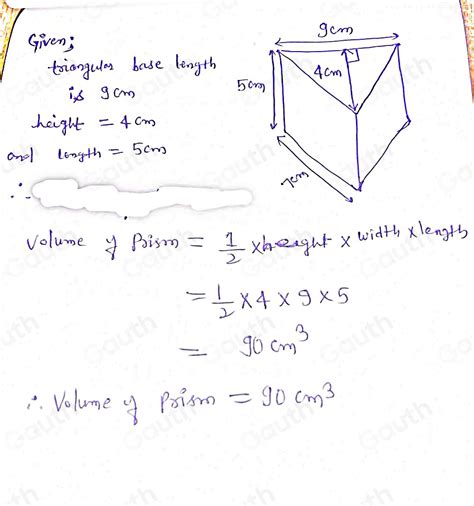 Given;
triangular base length
is 9cm
height = 4cm
and length = 5cm
∴
9cm
4cm
5cm
7cm
Volume of Prism = 1/2 × height × width × length
= 1/2 × 4 × 9 × 5
= 90 cm³
∴ Volume of Prism = 90 cm³